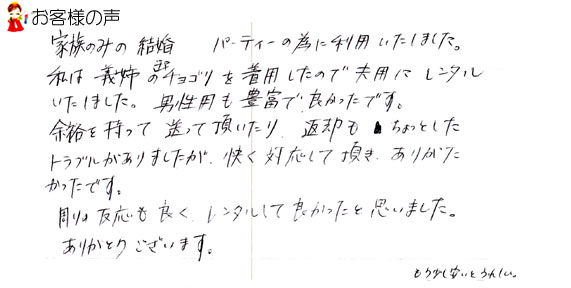 お客様の声
家族のみの 結婚 パーティーの為に利用いたしました。
私は 義姉のチョゴリを着用したので夫用にレンタル
いたしました。男性用も豊富で良かったです。
余裕を持って送って頂いたり、返却もちょっとした
トラブルがありましたが、快く対応して頂き、ありがた
かったです。
周りの反応も良く、レンタルして良かったと思いました。
ありがとうございます。
もう少し安いとうれしい。